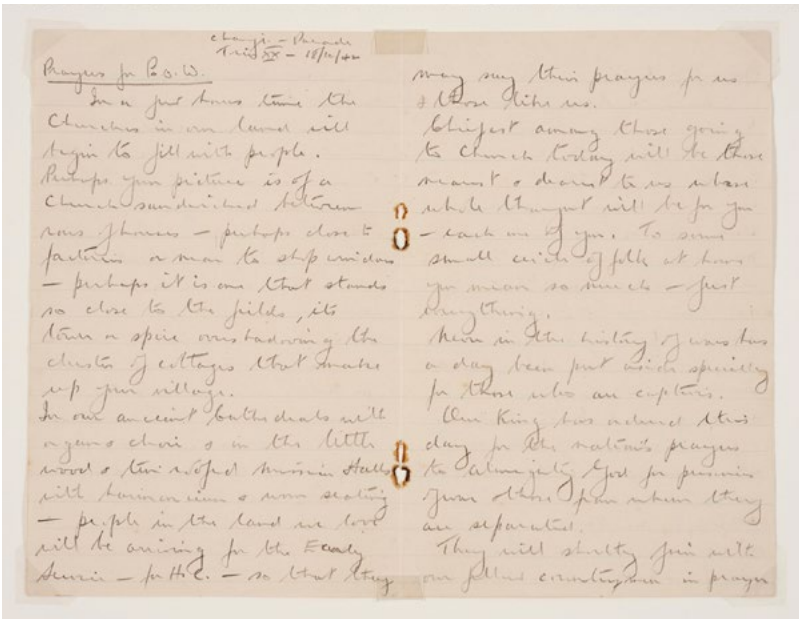 Changi – Parade
Trin XX – 18/11/44
Prayers for P.o.W.
In a few hours time the
Churches in our land will
begin to fill with people.
Perhaps your picture is of a
Church sandwiched between
rows of houses – perhaps close to
factories or near to shop windows
– perhaps it is one that stands
so close to the fields, its
tower or spire overshadowing the
cluster of cottages that make
up your village.
In our ancient Cathedrals with
organs choir & in the little
wood & tin roofed Mission Halls
with harmonium & worn seating
– people in the land we love
will be arriving for the Early
Service – for H.C. – so that they
may say their prayers for us
& those like us.
Chiefest among those going
to Church today will be those
nearest & dearest to us whose
whole thought will be for you
– each one of you. To some
small circle of folk at home
you mean so much – just
everything.
Never in the history of wars has
a day been put aside specially
for those who are captives.
Our King has ordered this
day for the nation's prayers
to almighty God for prisoners
of war & those from whom they
are separated.
They will shortly join with
our fellow countrymen in prayer